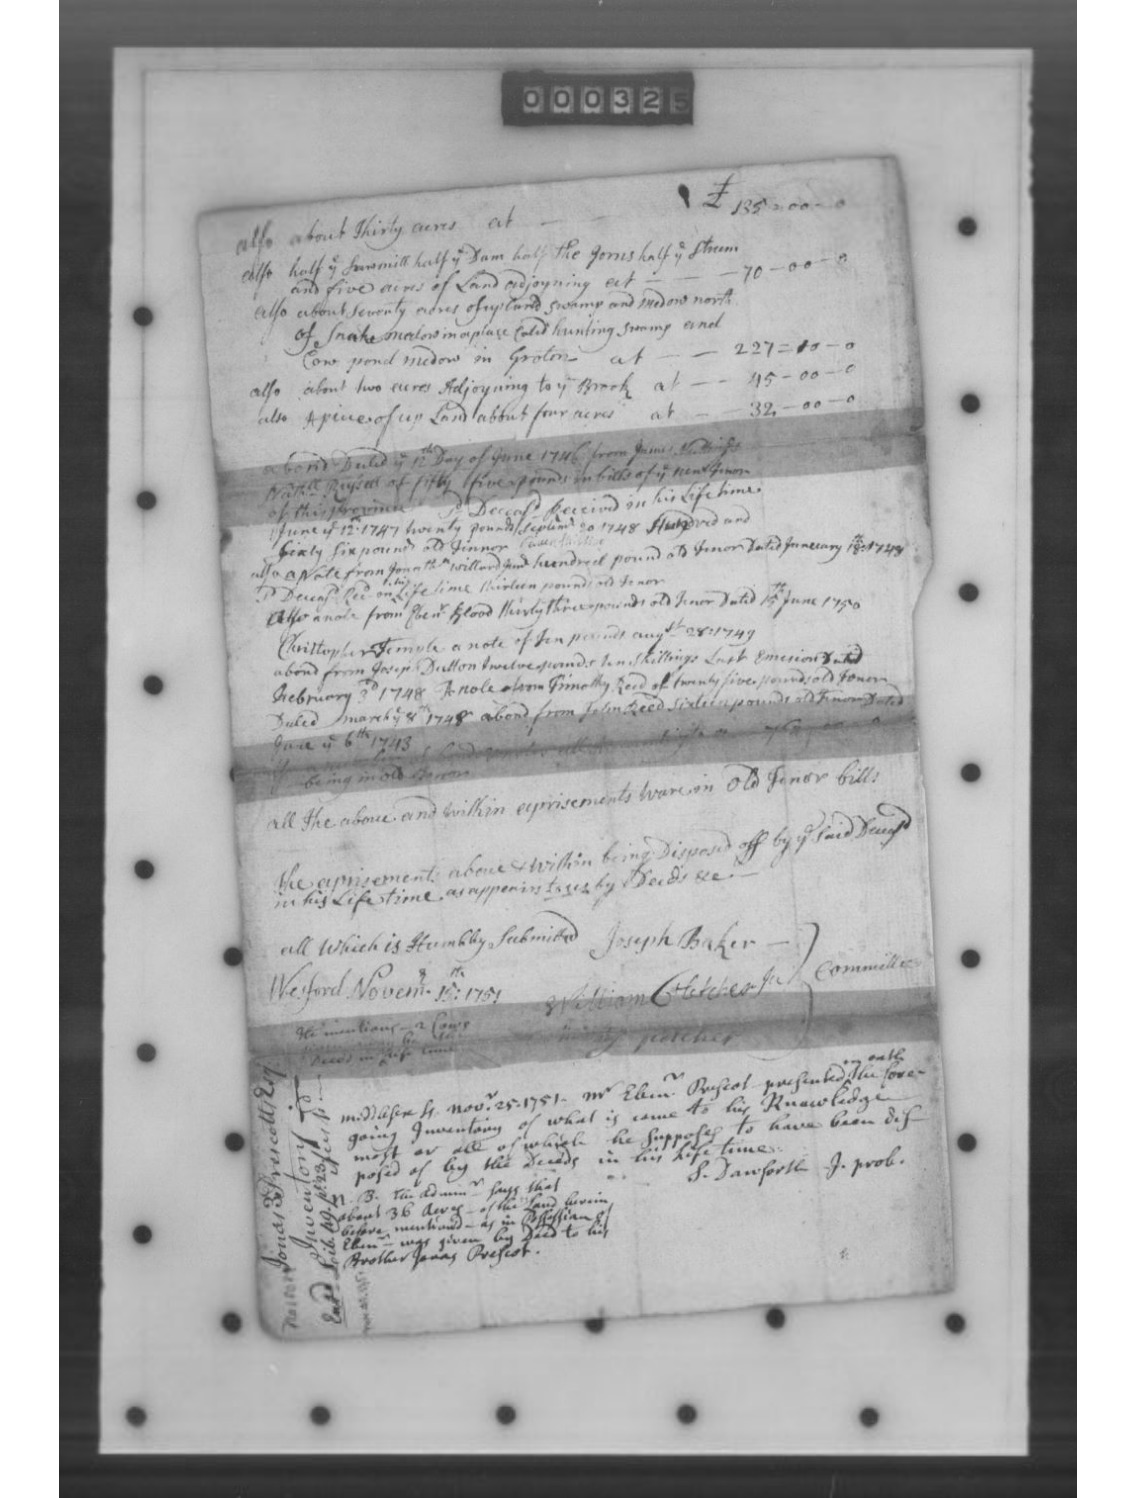 000325
£ 135-00-0
also about Thirty acres at
also half yͤ Sawmill half yͤ Dam half the Jorns half yͤ Stream
and five acres of Land adjoyning at 70-00-0
also about Seventy acres of upland Swamp and Medow north
of Snake medow in a place Caled hunting Swamp and
Cow pond medow in Groton at 227=10-0
also about two acres Adjoyning to yͤ Brook at 45-00-0
also A piece of up Land about four acres at 32-00-0
abond Dated yͤ 12th Day of June 1746 from James
of fifty five pounds in bills of yͤ new Tenor
of this province Deceasd Received in his Life time
June yͤ 12th 1747 twenty pounds Septemr 20 1748 Hundred and
Sixty Six pounds old Tennor
also a Note from Jonathn Willard Junr hundred pound old Tenor Dated January 18th: 1748
Deceasd Recd in his Life time thirteen pounds old Tenor
Also a note from Ebenr Blood thirty three pounds old Tenor Dated 15th June 1750
Christopher Temple a note of Ten pounds augst 28: 1749
abond from Joseph Dutton twelve pounds ten Shillings Last Emision Dated
February 3d 1748 A note from Timothy Reed of twenty five pounds old Tenor
Dated march yͤ 8th 1748 abond from John Reed Sixteen pounds old Tenor Dated
June yͤ 6th 1743
being in old Tenor
all the above and within aprisements ware in Old Tenor bills
the aprisements above & within being Disposed off by yͤ Said Deceasd
in his Life time as appears to us by Deeds &c.
all Which is Humbly Submitted Joseph Baker
Committee
Wesford Novemr 15th: 1751 William Fletcher Jur
He mentions 2 Cows
Deced in life time
Middlesex Ss. Novr. 25. 1751. Mr Ebenr Prescot presented on oath the fore-
going Inventory of what is come to his Knowledge
most or all of which he Supposes to have been dis-
posed of by the Deeds in his life time.
S. Danforth J. prob.
N. B. The Adminr Says that
about 36 Acres of the Land herein
before mentiond as in Possession of
Ebenr was given by Deed to his
Brother Jonas Prescot.
Jonas Prescott Esq.
Inventory
Entd Lib. 49. p. 231